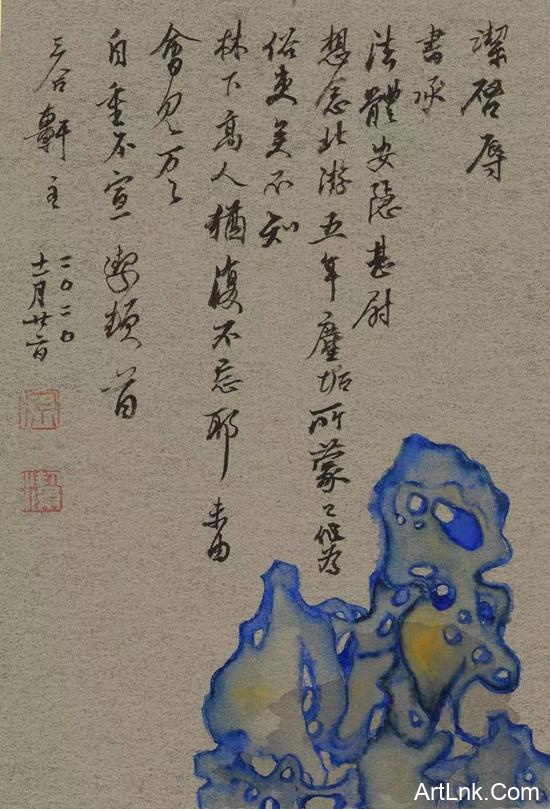 潔啓辱
書承
法體安隱甚尉
想念北游五年塵垢所蒙已化為
俗吏矣不知
林下高人猶復不忘耶未由
會見萬萬
自重不宣 潔頓首
三合軒主 二〇二〇
十一月廿二日
ArtLnk.Com